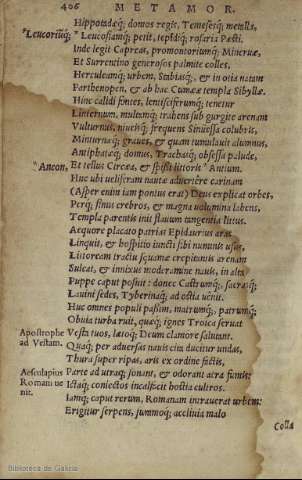 406 METAMOR.
Hippotadæq; domos regis, Temesesq; metalla,
"Leucosiamq;
Leucosiamq; petit, tepidiq; rosaria Pæsti.
Inde legit Capreas, promontoriumq; Mineruæ,
Et Surrentino generosos palmite colles,
Herculeamq; urbem, Stabiasq;, & in otia natam
Parthenopen, & ab hac Cumææ templa Sibyllæ.
Hinc calidi fontes, lentisciferumq; tenetur
Linternum, multamq; trahens sub gurgite arenam
Vulturnus, niueisq; frequens Sinuessa colubris,
Minturnæq; graues, & quam tumulauit alumnus,
Antiphatæq; domus, Trachasq; obsessa palude,
"Ancon,
Et tellus Circæa, & spissi littoris "Antium.
Huc ubi ueliferam nautæ aduertêre carinam
(Asper enim iam pontus erat) Deus explicat orbes,
Perq; sinus crebros, & magna uolumina labens,
Templa parentis init flauum tangentia litus.
Aequore placato patrias Epidaurius aras
Linquit, & hospitio iuncti sibi numinis usus,
Littoream tractu squamæ crepitantis arenam
Sulcat, & innixus moderamine nauis, in alta
Puppe caput posuit: donec Castrumq;, sacrasq;
Lauini sedes, Tyberinaq; ad ostia uenit.
Huc omnes populi passim, matrumq;, patrumq;
Obuia turba ruit, quæq; ignes Troica seruat
Apostrophe
ad Vestam.
Vesta tuos, lætoq; Deum clamore salutant.
Quaq; per aduersas nauis cita ducitur undas,
Thura super ripas, aris ex ordine factis,
Aesculapius
Romam ue
nit.
Parte ab utraq; sonant, & odorant aera fumis:
Ictaq; coniectos incalfecit hostia cultros.
Iamq; caput rerum, Romanam intrauerat urbem:
Erigitur serpens, summoq; accliuia malo
Colla
Biblioteca de Galicia